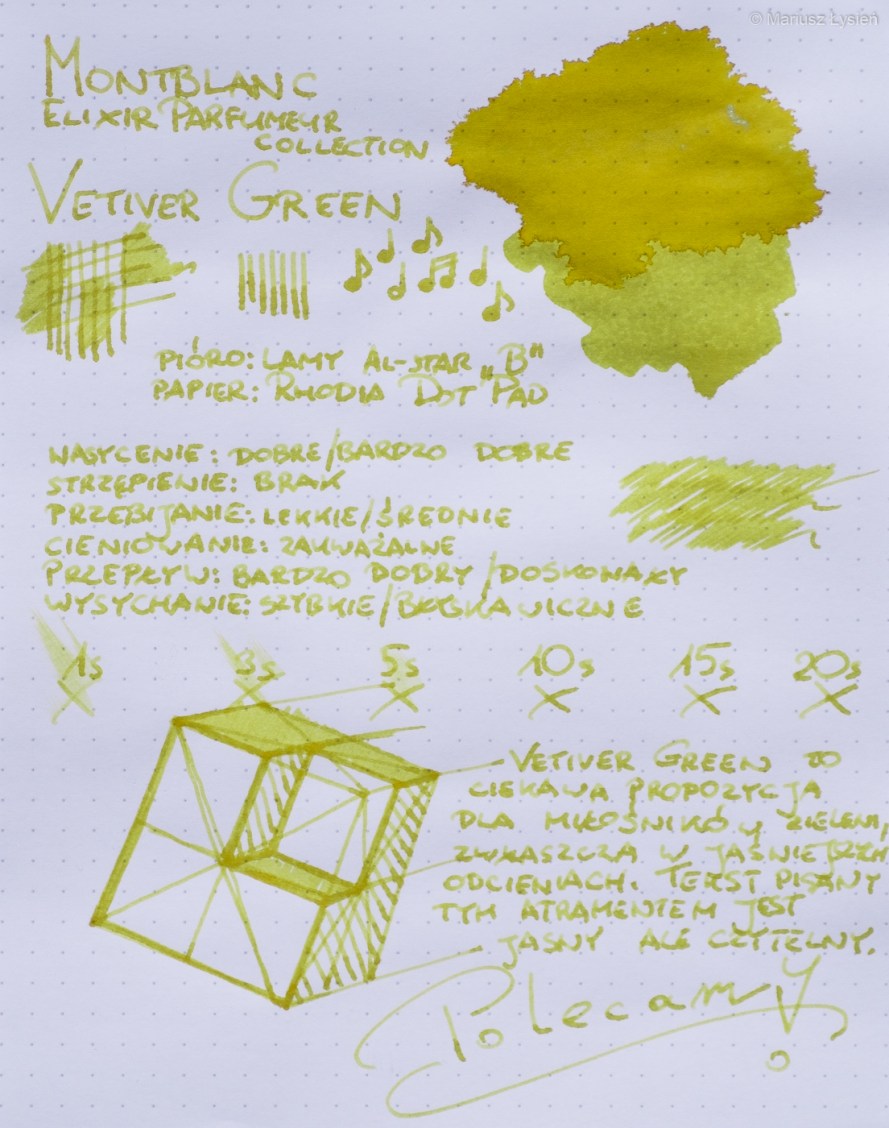 © Mariusz Łysień
MONTBLANC
ELIXIR PARFUMEUR
COLLECTION
VETIVER GREEN
PIÓRO: LAMY AL-STAR „B"
PAPIER: RHODIA DOT PAD
NASYCENIE: DOBRE/BARDZO DOBRE
STRZĘPIENIE: BRAK
PRZEBIJANIE: LEKKIE/ŚREDNIE
CIENIOWANIE: ZAUWAŻALNE
PRZEPŁYW: BARDZO DOBRY/DOSKONAŁY
WYSYCHANIE: SZYBKIE/BŁYSKAWICZNE
1s 3s 5s 10s 15s 20s
VETIVER GREEN TO
CIEKAWA PROPOZYCJA
DLA MIŁOŚNIKÓW ZIELENI,
ZWŁASZCZA W JAŚNIEJSZYCH
ODCIENIACH. TEKST PISANY
TYM ATRAMENTEM JEST
JASNY ALE CZYTELNY.
Polecam!